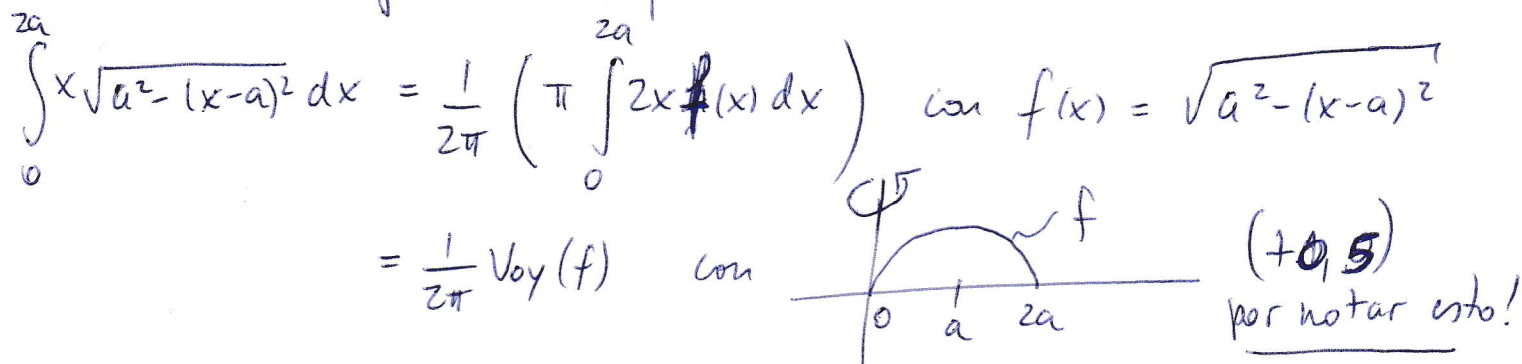 ∫₀²ᵃ x√(a²-(x-a)²) dx = 1/2π (π ∫₀²ᵃ 2x f(x) dx) con f(x) = √(a²-(x-a)²)
= 1/2π Voy(f) con π f (+0,5)
0 a 2a por notar esto!